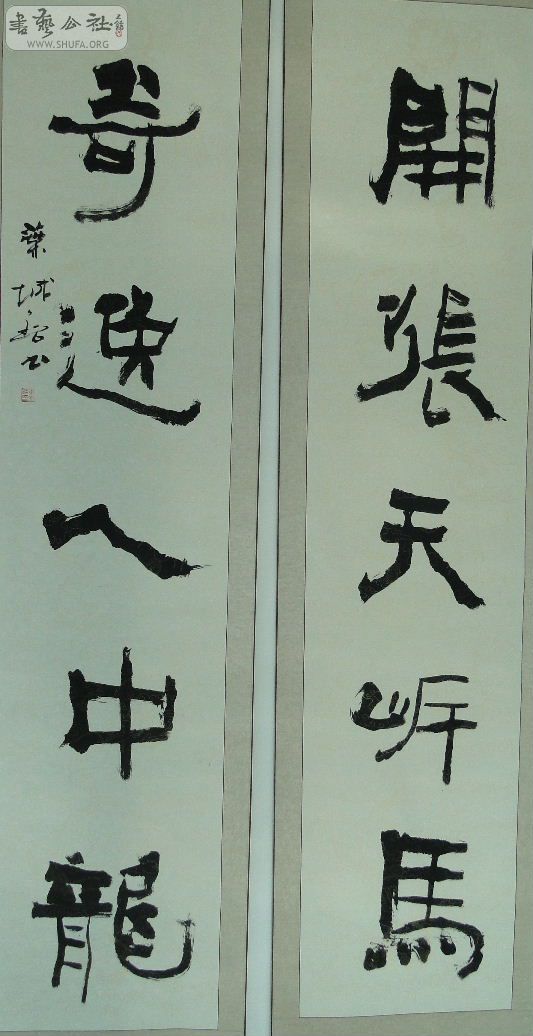 書藝公社
WWW.SHUFA.ORG
開張天岸馬
奇逸人中龍